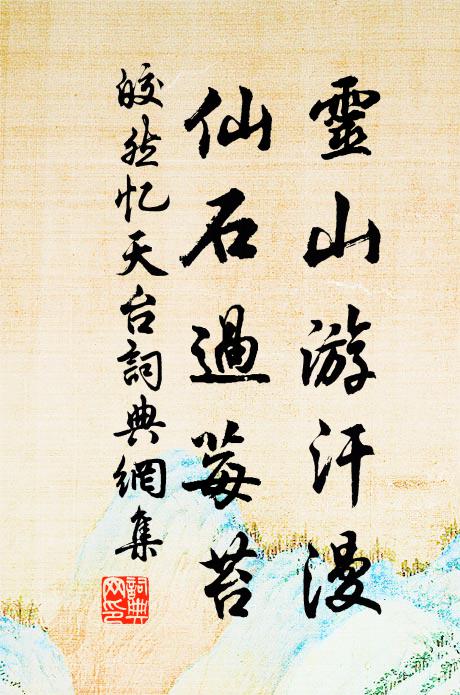 靈山游汗漫
仙石過莓苔
皎然忆天台詞典網集